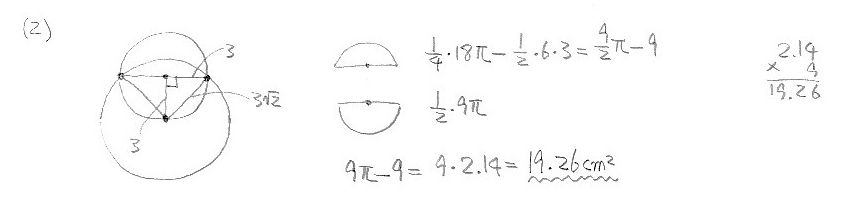 (2)
3
3√2
3
1/4・18π − 1/2・6・3 = 9/2π − 9
1/2・9π
9π − 9 = 9・2.14 = 19.26cm²
2.14
× 9
19.26